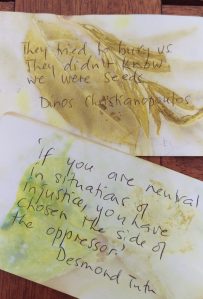 They tried to bury us
They didn't know
we were seeds
Dinos Christianopoulos
'if you are neutral
in situations of
injustice, you have
chosen the side of
the oppressor'
Desmond Tutu